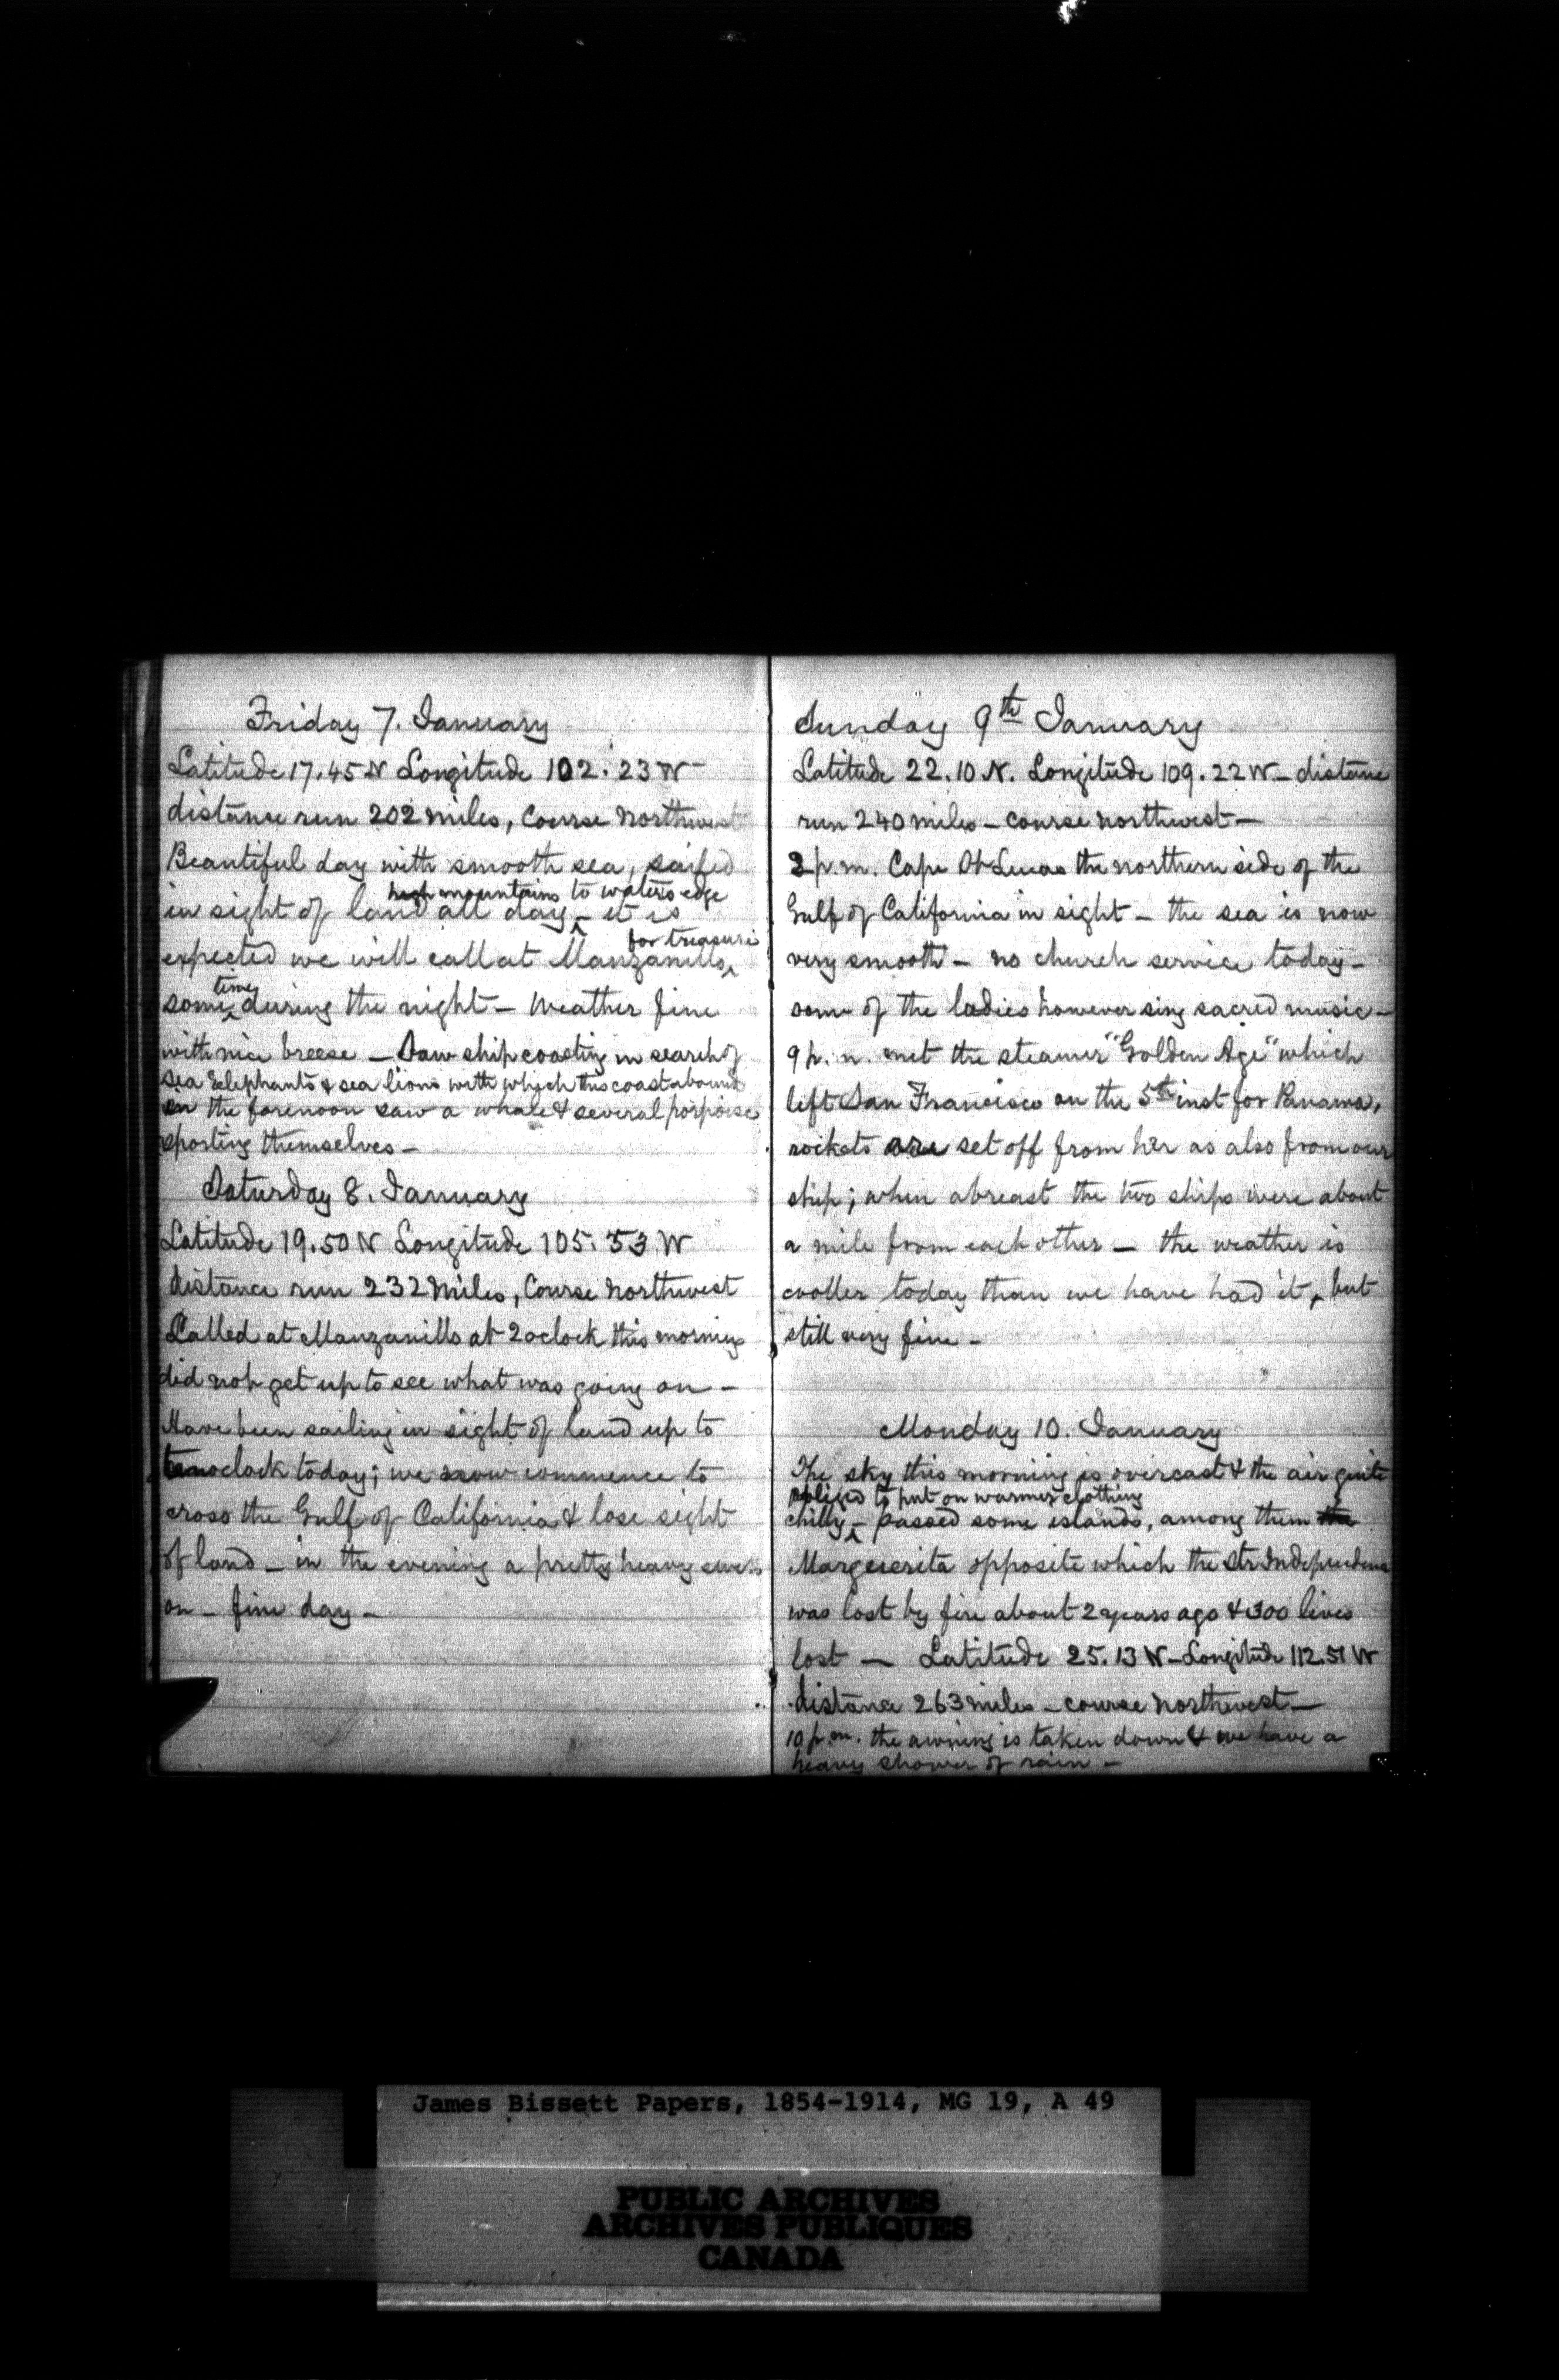 Friday 7. January
Latitude 17.45 N Longitude 102. 23 W
distance run 202 miles, Course Northwest
Beautiful day with smooth sea, sailed
high mountains to water's edge
in sight of land all day - it is
for treasure
expected we will call at Manzanillo
time
some during the night - Weather fine
with nice breese - Saw ship coasting in search of
sea elephants & sea lions with which this coast abound
in the forenoon saw a whale & several porpoise
sporting themselves -
Saturday 8. January
Latitude 19.50 N Longitude 105. 53 W
distance run 232 miles, Course Northwest
Called at Manzanillo at 2 oclock this morning
did not get up to see what was going on -
Have been sailing in sight of land up to
ten oclock today; we now commence to
cross the Gulf of California & lose sight
of land - in the evening a pretty heavy swell
on - fine day -
Sunday 9th January
Latitude 22.10 N. Longitude 109. 22 W - distance
run 240 miles - course northwest -
2 p.m. Cape St Lucas the northern side of the
Gulf of California in sight - the sea is now
very smooth - no church service today -
some of the ladies however sing sacred music -
9 p.m. met the steamer "Golden Age" which
left San Francisco on the 5th inst for Panama,
rockets are set off from her as also from our
ship; when abreast the two ships were about
a mile from each other - the weather is
cooller today than we have had it, but
still very fine -
Monday 10. January
The sky this morning is overcast & the air quite
obliged to put on warmer clothing
chilly - passed some islands, among them the
Marguerita opposite which the Str Independence
was lost by fire about 2 years ago & 300 lives
lost - Latitude 25. 13 N - Longitude 112. 51 W
distance 263 miles - course northwest -
10 p.m. the awning is taken down & we have a
heavy shower of rain -
James Bissett Papers, 1854-1914, MG 19, A 49
PUBLIC ARCHIVES
ARCHIVES PUBLIQUES
CANADA